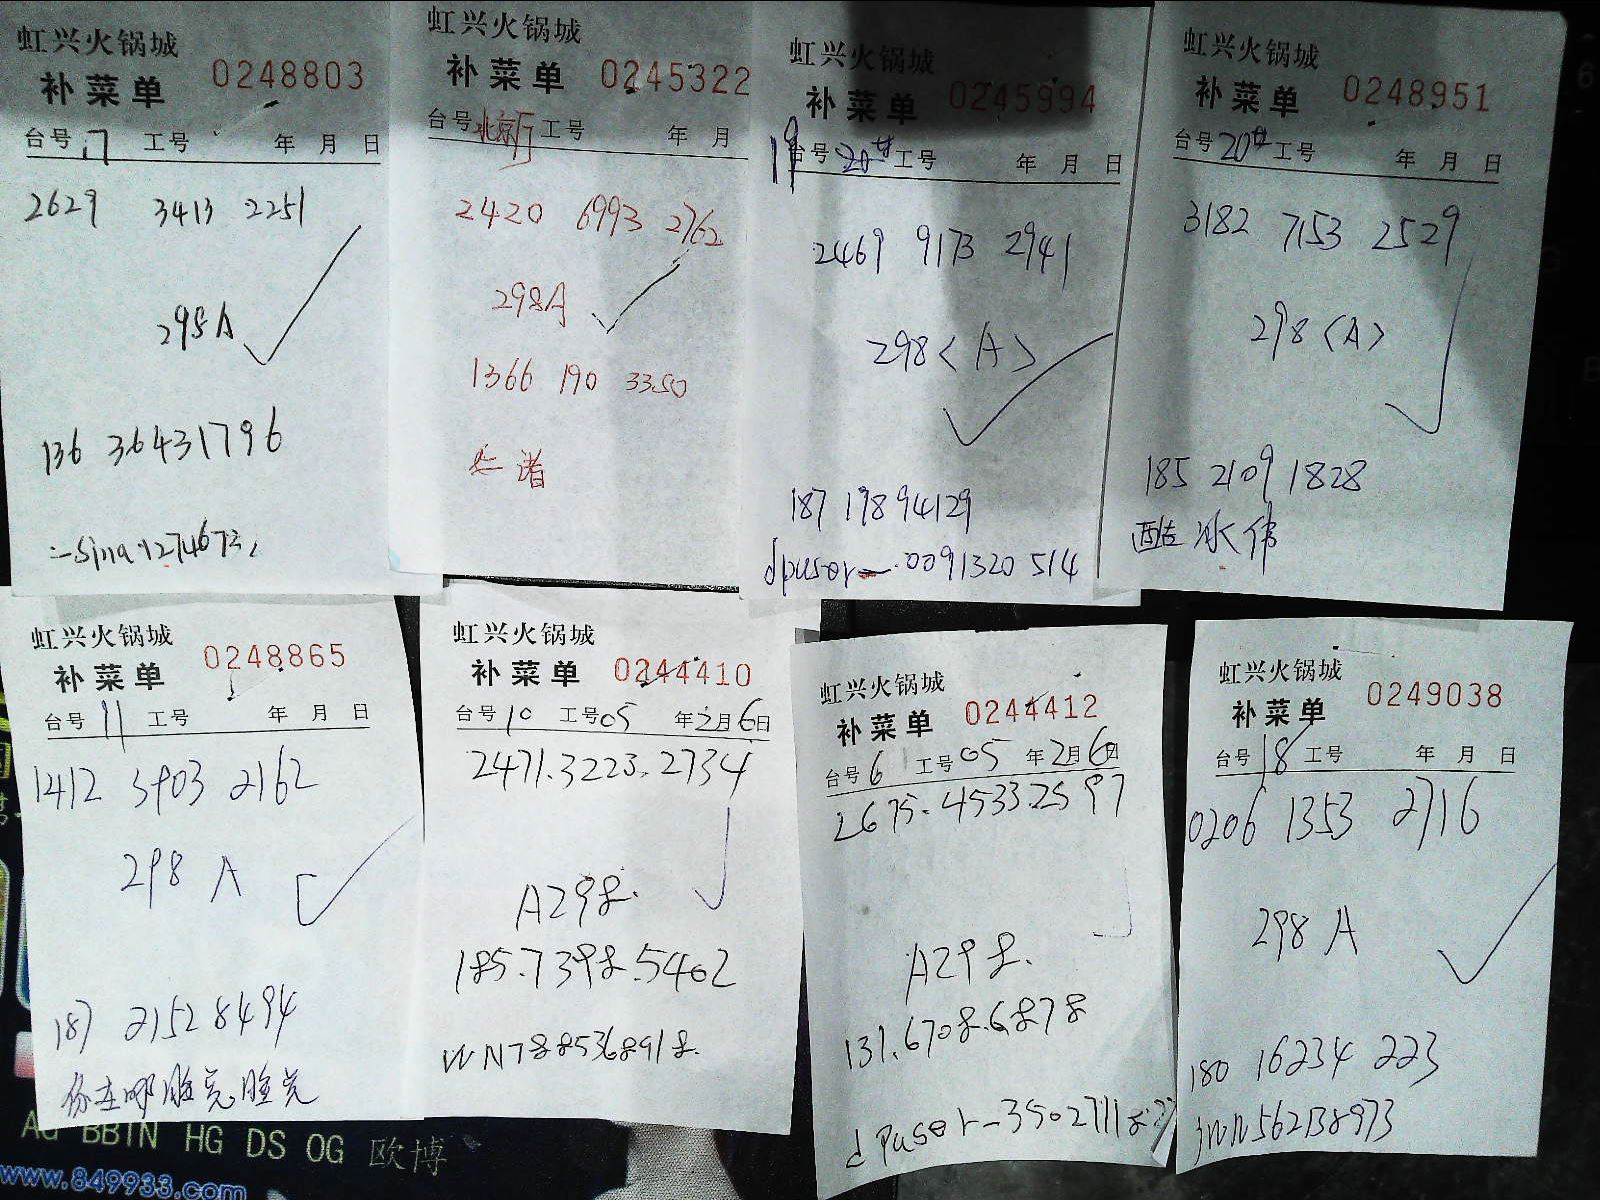 虹兴火锅城
补菜单 0248803
台号 17 工号 年 月 日
2629 3413 2251
298A
136 36431796
虹兴火锅城
补菜单 0245322
台号 北京厅 工号 年 月
2420 6993 2762
298A
1366 190 3350
虹兴火锅城
补菜单 0245994
19 台号 20廿 工号 年 月 日
2469 9173 2941
298<A>
187 19894129
dpuser-.0091320514
虹兴火锅城
补菜单 0248951
台号 20廿 工号 年 月 日
3182 7153 2529
298<A>
185 2109 1828
酷冰伟
虹兴火锅城
补菜单 0248865
台号 11 工号 年 月 日
1412 5903 2162
298 A
187 21528494
你在哪
虹兴火锅城
补菜单 0244410
台号 10 工号 05 年 2月 6日
2471.3223.2734
A298.
185.7398.5402
WN7885368918.
虹兴火锅城
补菜单 0244412
台号 6 工号 05 年 2月 6日
2675.4533.2597
A298.
131.6708.6878
虹兴火锅城
补菜单 0249038
台号 18 工号 年 月 日
0206 1353 2716
298 A
180 16234 223
AG BBIN HG DS OG 欧博
www.849933.com